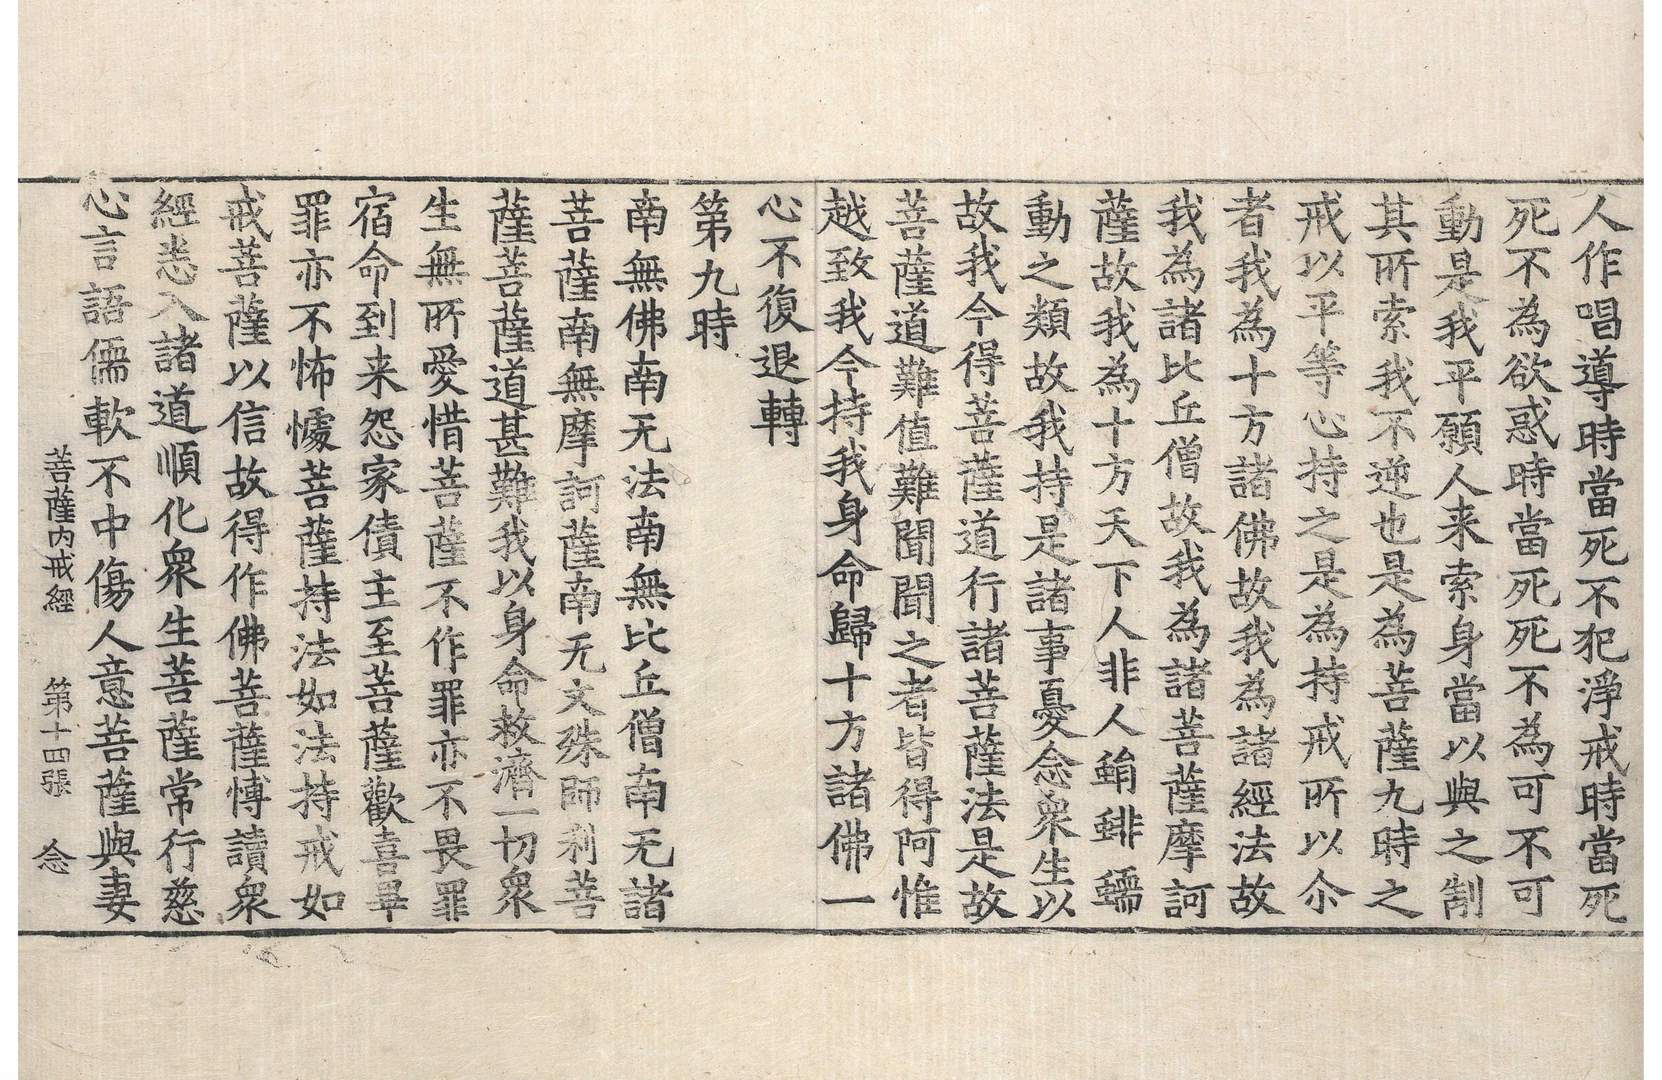 人作唱導時當死不犯淨戒時當死
死不為欲惑時當死死不為可不可
動是我平願人来索身當以與之制
其所索我不逆也是為菩薩九時之
戒以平等心持之是為持戒所以尒
者我為十方諸佛故我為諸經法故
我為諸比丘僧故我為諸菩薩摩訶
薩故我為十方天下人非人蜎蜚蠕
動之類故我持是諸事憂念衆生以
故我今得菩薩道行諸菩薩法是故
菩薩道難值難聞聞之者皆得阿惟
越致我今持我身命歸十方諸佛一
心不復退轉
第九時
南無佛南无法南無比丘僧南无諸
菩薩南無摩訶薩南无文殊師利菩
薩菩薩道甚難我以身命救濟一切衆
生無所愛惜菩薩不作罪亦不畏罪
宿命到来怨家債主至菩薩歡喜畢
罪亦不怖懅菩薩持法如法持戒如
戒菩薩以信故得作佛菩薩愽讀衆
經悉入諸道順化衆生菩薩常行慈
心言語儒軟不中傷人意菩薩與妻
菩薩内戒經 第十四張 念